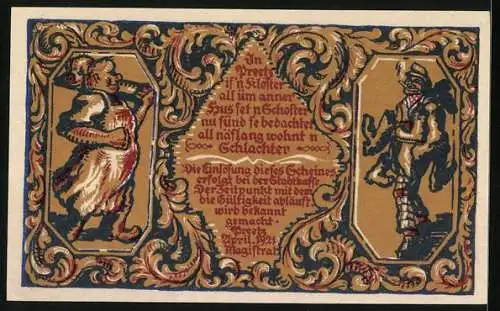 In
Preetz
is'n Kloster
all üm anner
Hus set'n Schoster
nu sünd se bedachter
all näslang wohnt'n
Schlachter
Die Einlösung dieses Scheines
erfolgt bei der Stadtkasse
Der Zeitpunkt mit dem
die Gültigkeit abläuft
wird bekannt
gemacht
Preetz
April 1921
Magistrat